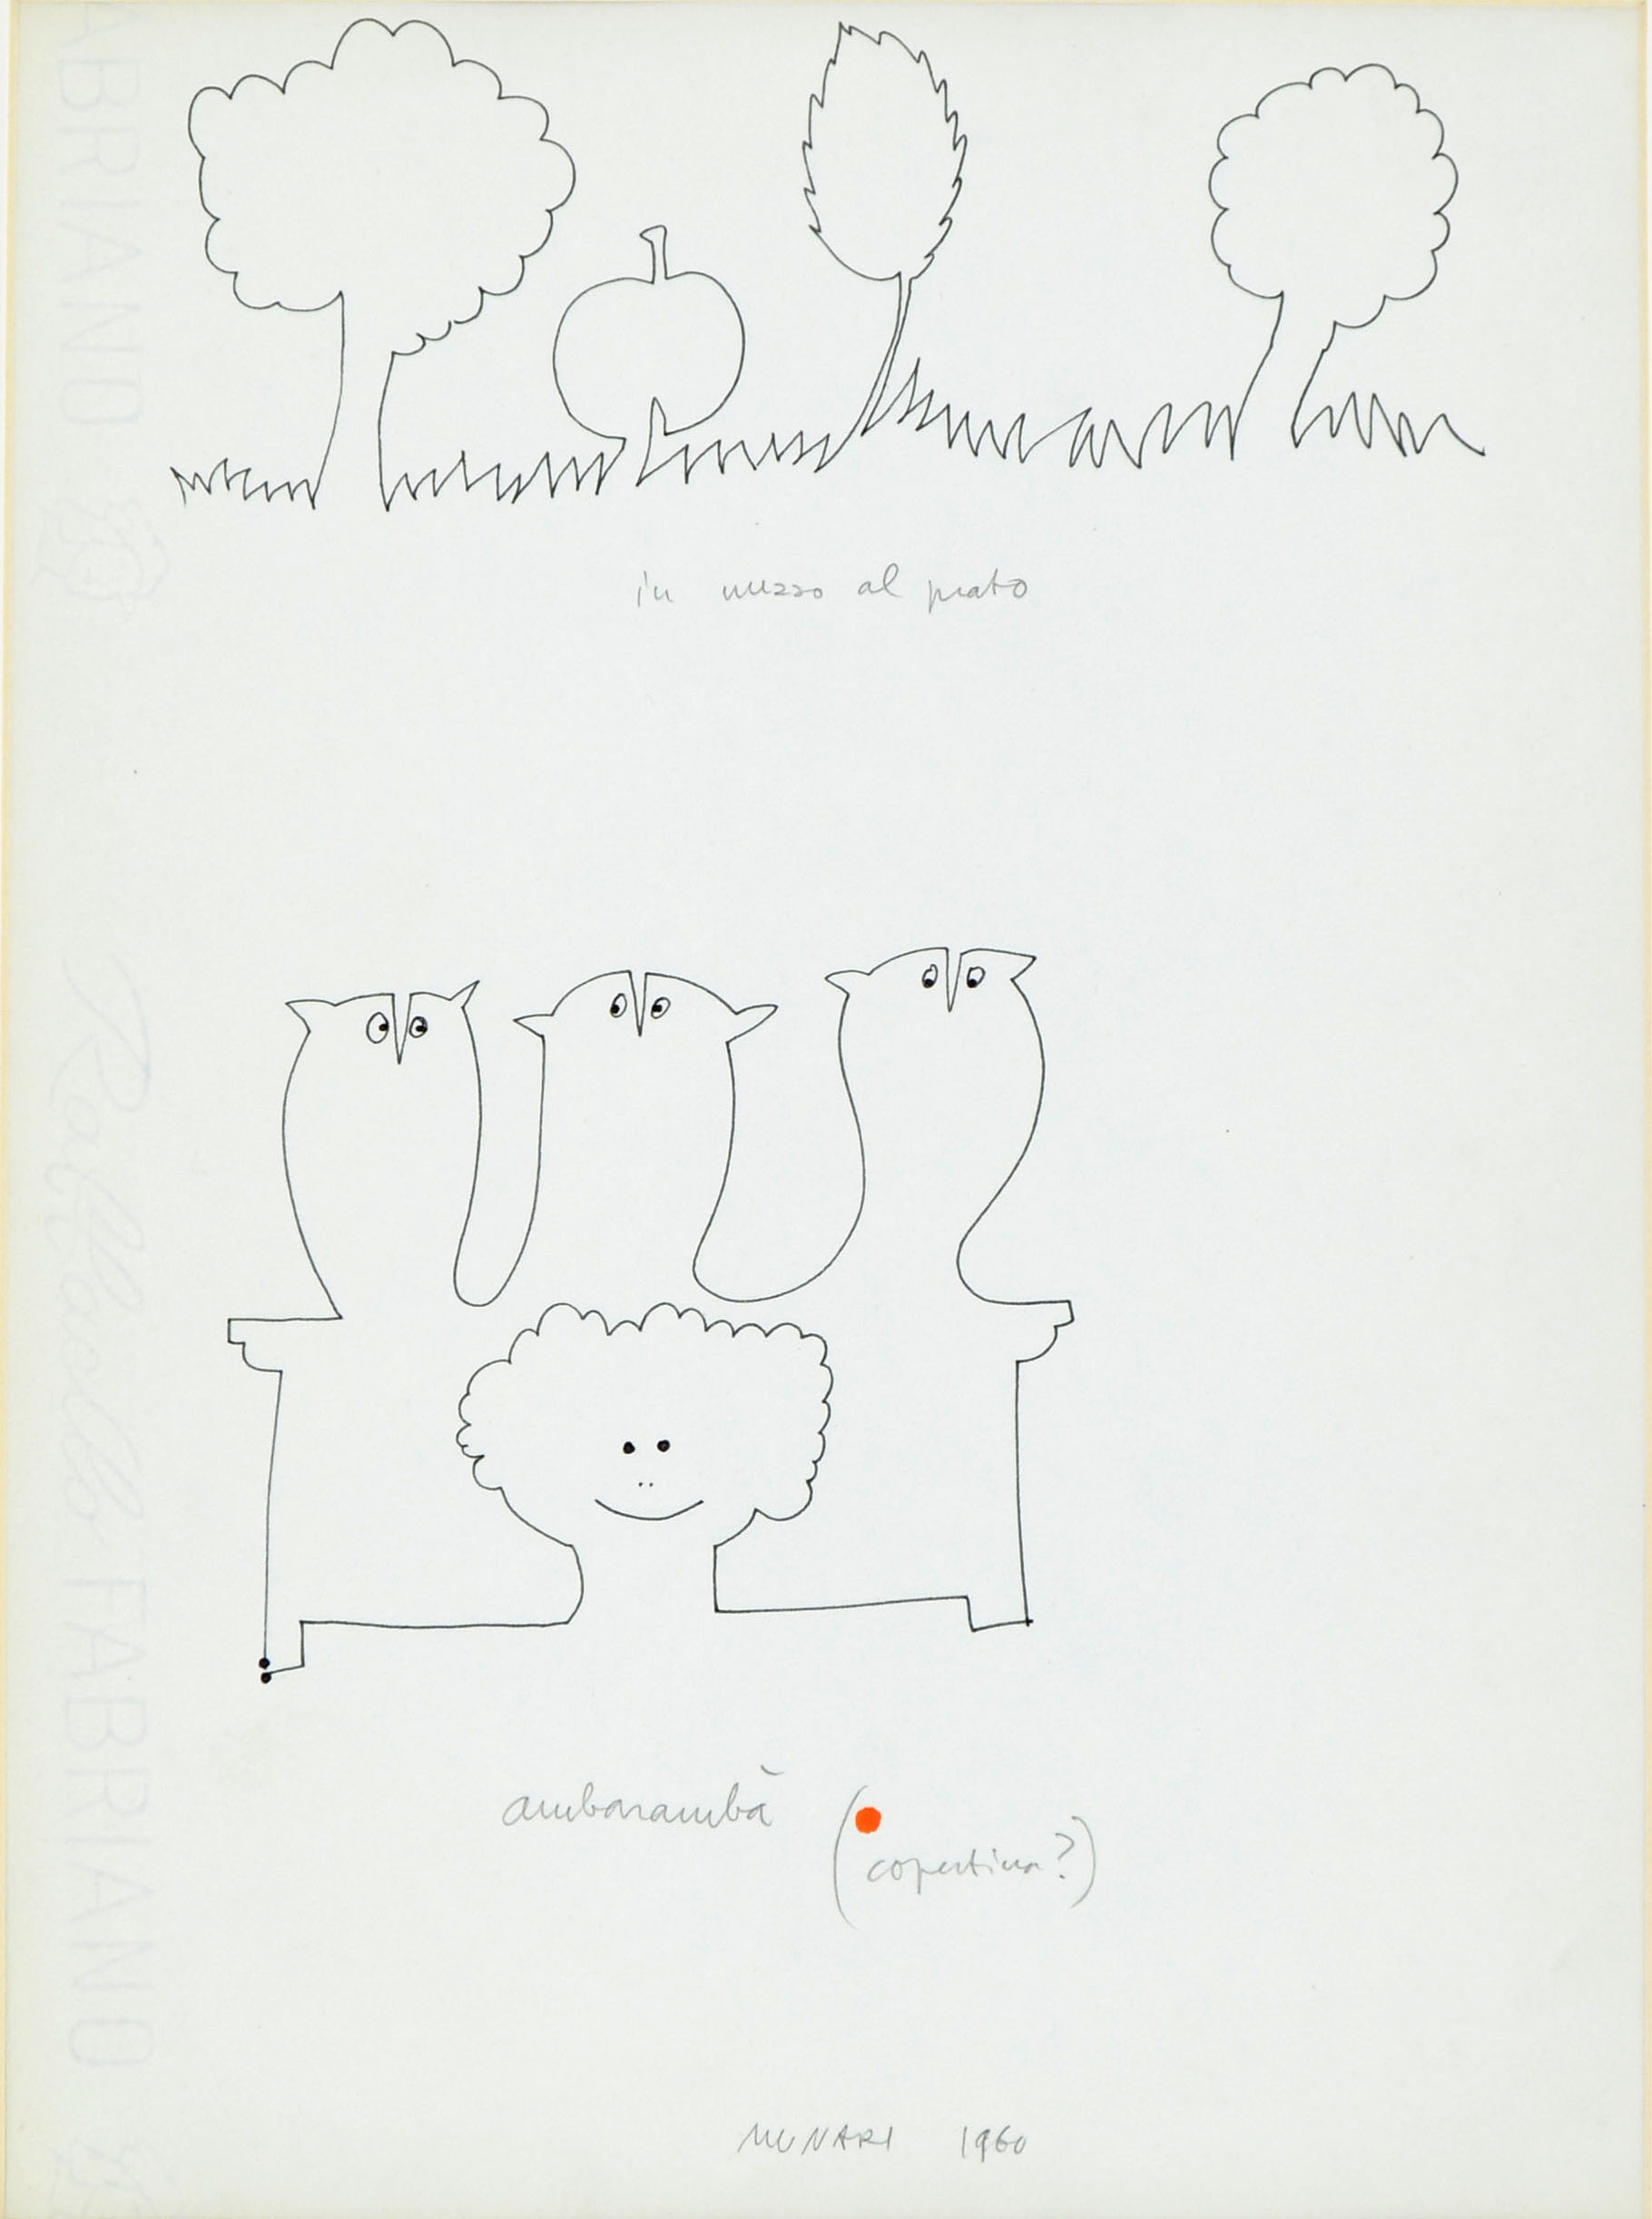 in mezzo al prato
ambarambà
(copertina?)
MUNARI 1960
ABRIANO
Raffaello FABRIANO